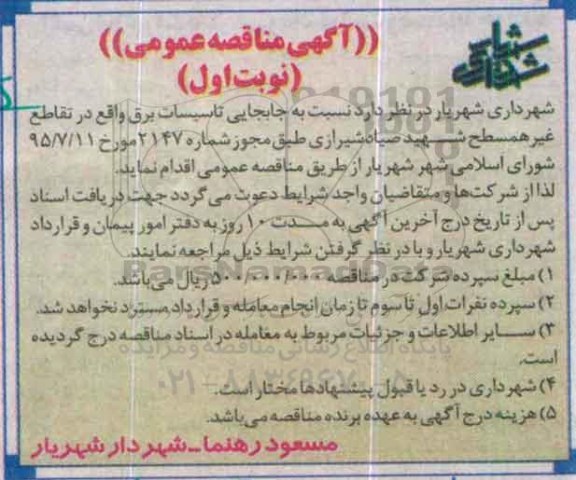 شهرداری شهریار
((آگهی مناقصه عمومی))
(نوبت اول)
شهرداری شهریار در نظر دارد نسبت به جابجایی تاسیسات برق واقع در تقاطع
غیر همسطح شهید صیاد شیرازی طبق مجوز شماره ۲۱۴۷ مورخ ۹۵/۷/۱۱
شورای اسلامی شهر شهریار از طریق مناقصه عمومی اقدام نماید.
لذا از شرکت‌ها و متقاضیان واجد شرایط دعوت می گردد جهت دریافت اسناد
پس از تاریخ درج آخرین آگهی به مدت ۱۰ روز به دفتر امور پیمان و قرارداد
شهرداری شهریار و با در نظر گرفتن شرایط ذیل مراجعه نمایند.
۱) مبلغ سپرده شرکت در مناقصه ۵۰۰/۰۰۰/۰۰۰ ریال می باشد.
۲) سپرده نفرات اول تا سوم تا زمان انجام معامله و قرارداد مسترد نخواهد شد.
۳) سایر اطلاعات و جزئیات مربوط به معامله در اسناد مناقصه درج گردیده
است.
۴) شهرداری در رد یا قبول پیشنهادها مختار است.
۵) هزینه درج آگهی به عهده برنده مناقصه می باشد.
مسعود رهنما-شهردار شهریار
ParsNamadData
پایگاه اطلاع رسانی مناقصه و مزایده